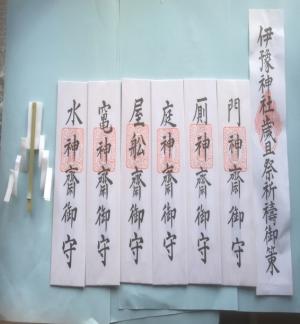 伊豫神社歳旦祭祈禱御策
門神齋御守
厠神齋御守
庭神齋御守
屋船齋御守
竈神齋御守
水神齋御守